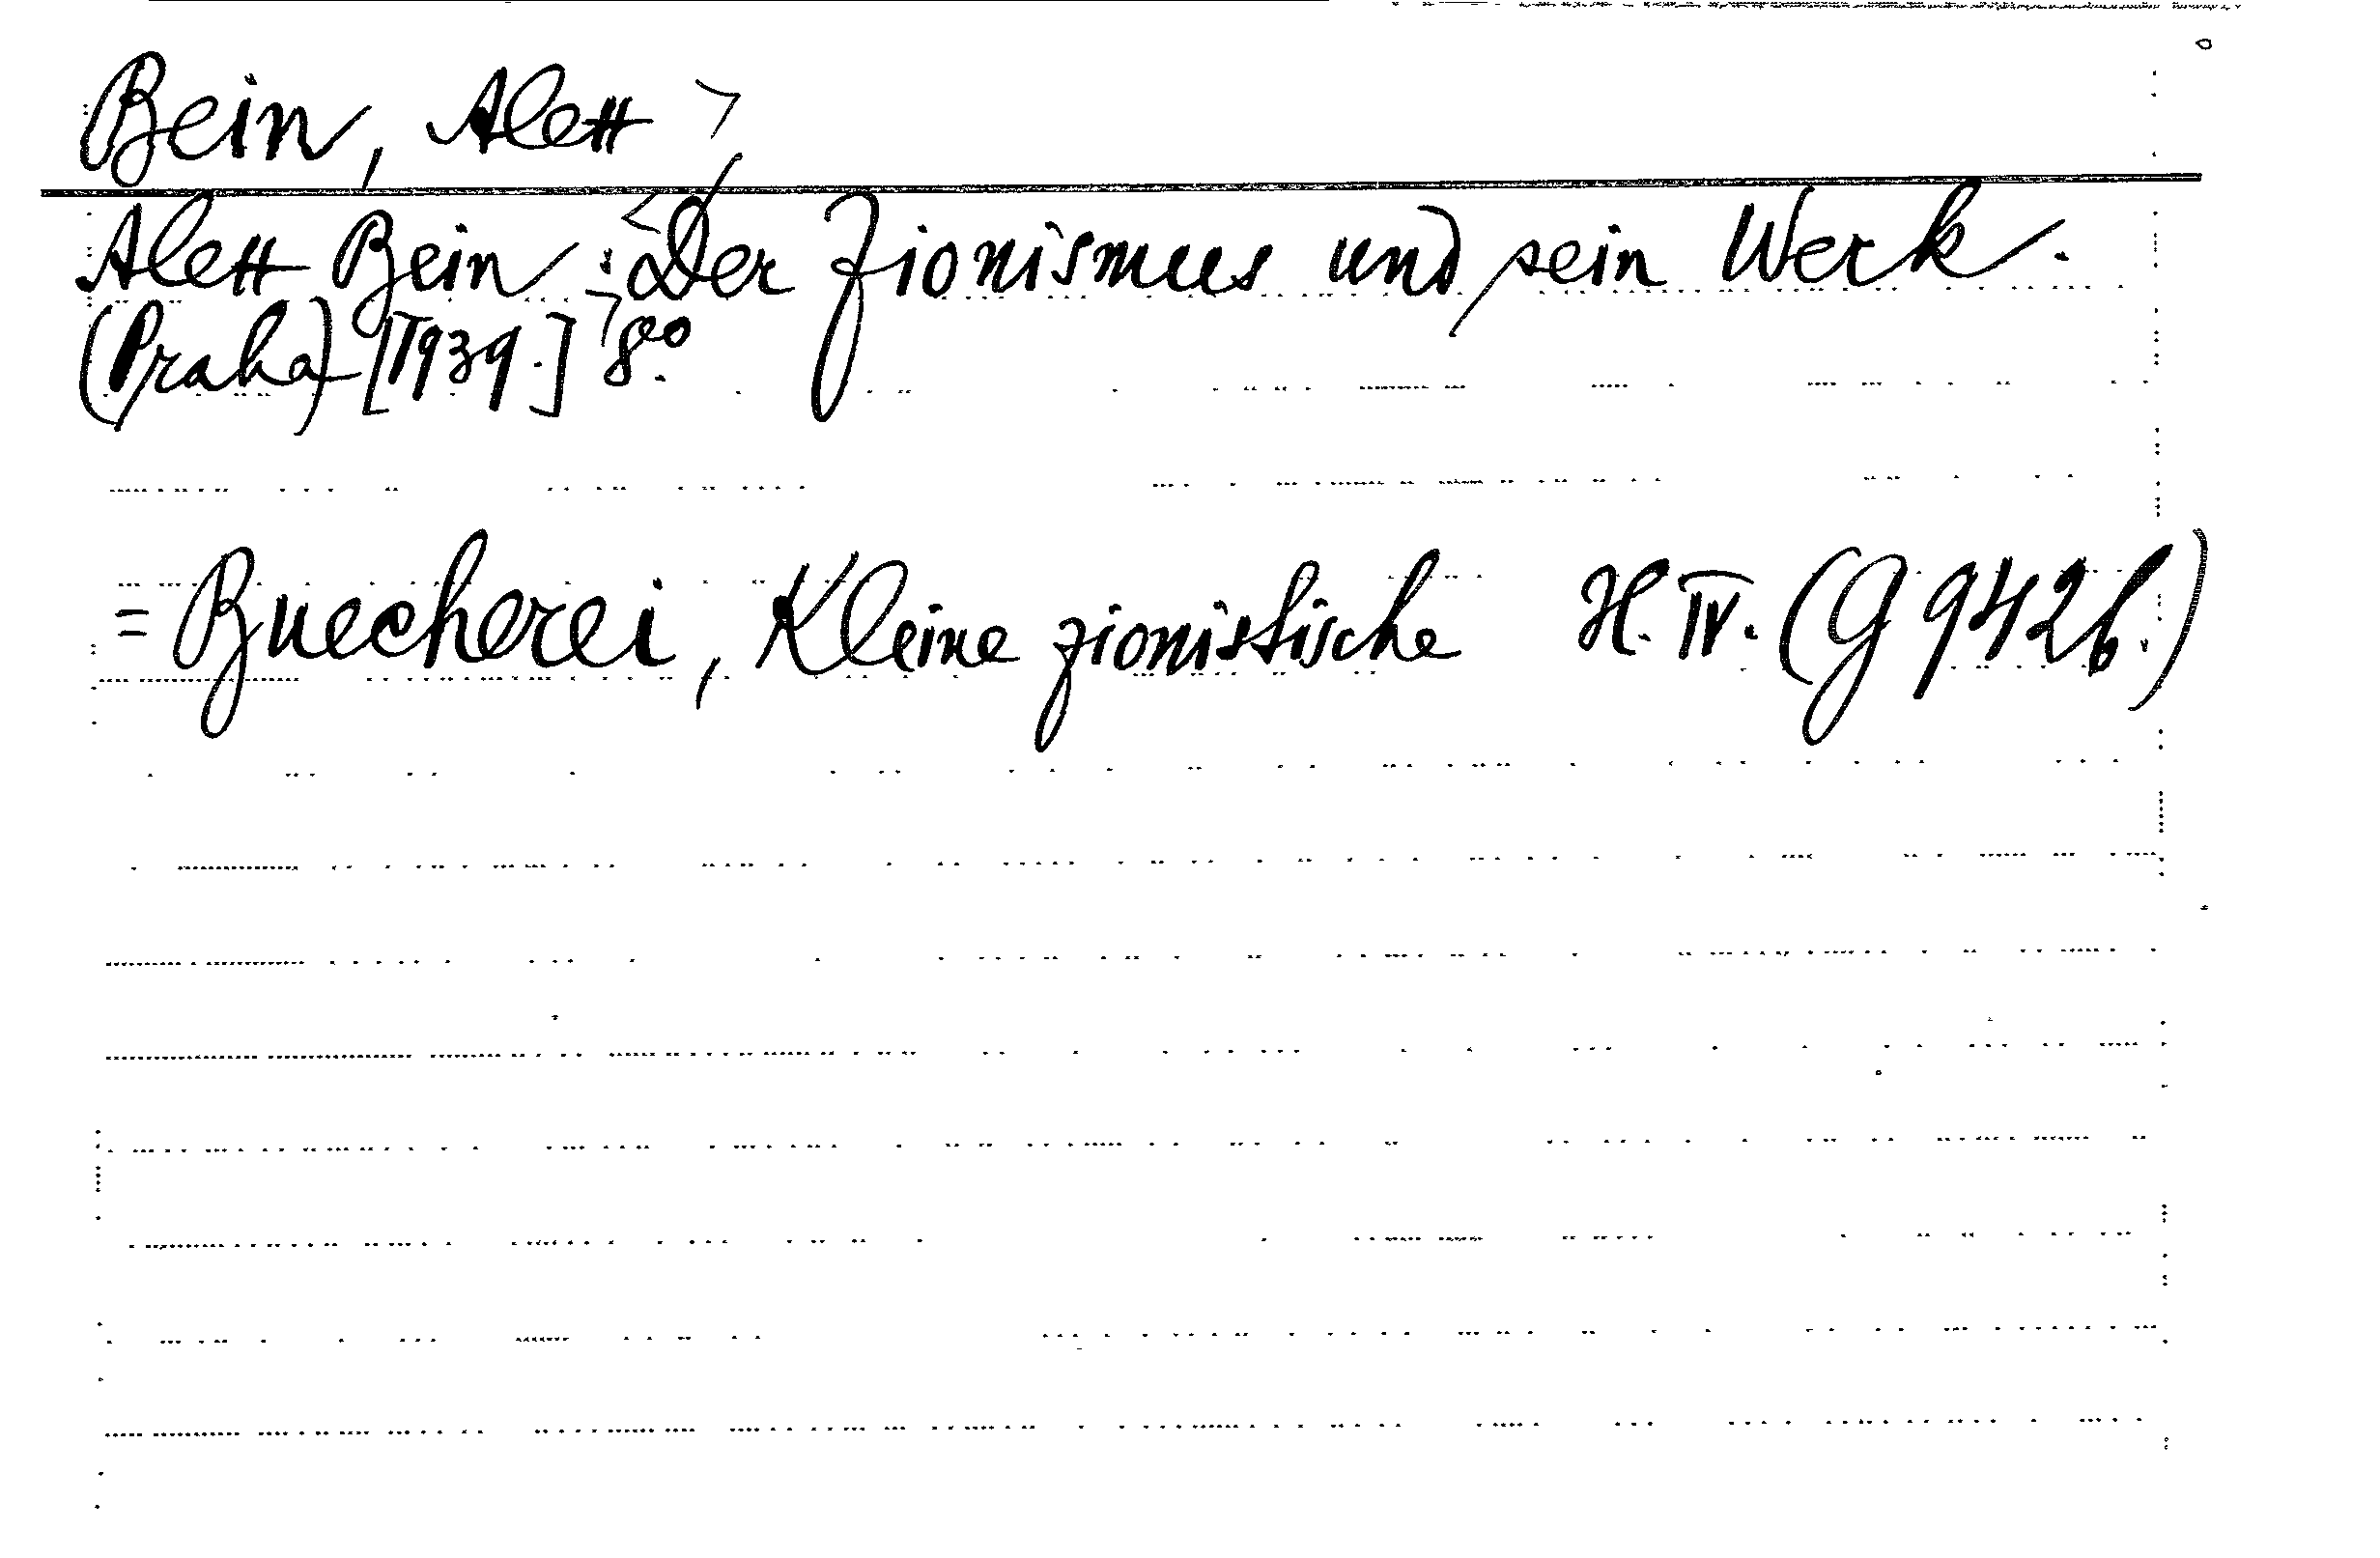 Bein, Alex
Alex Bein: Der Zionismus und sein Werk.
(Praha) [1939.] 8°.
= Buecherei, Kleine zionistische H. IV. (G 9426.)